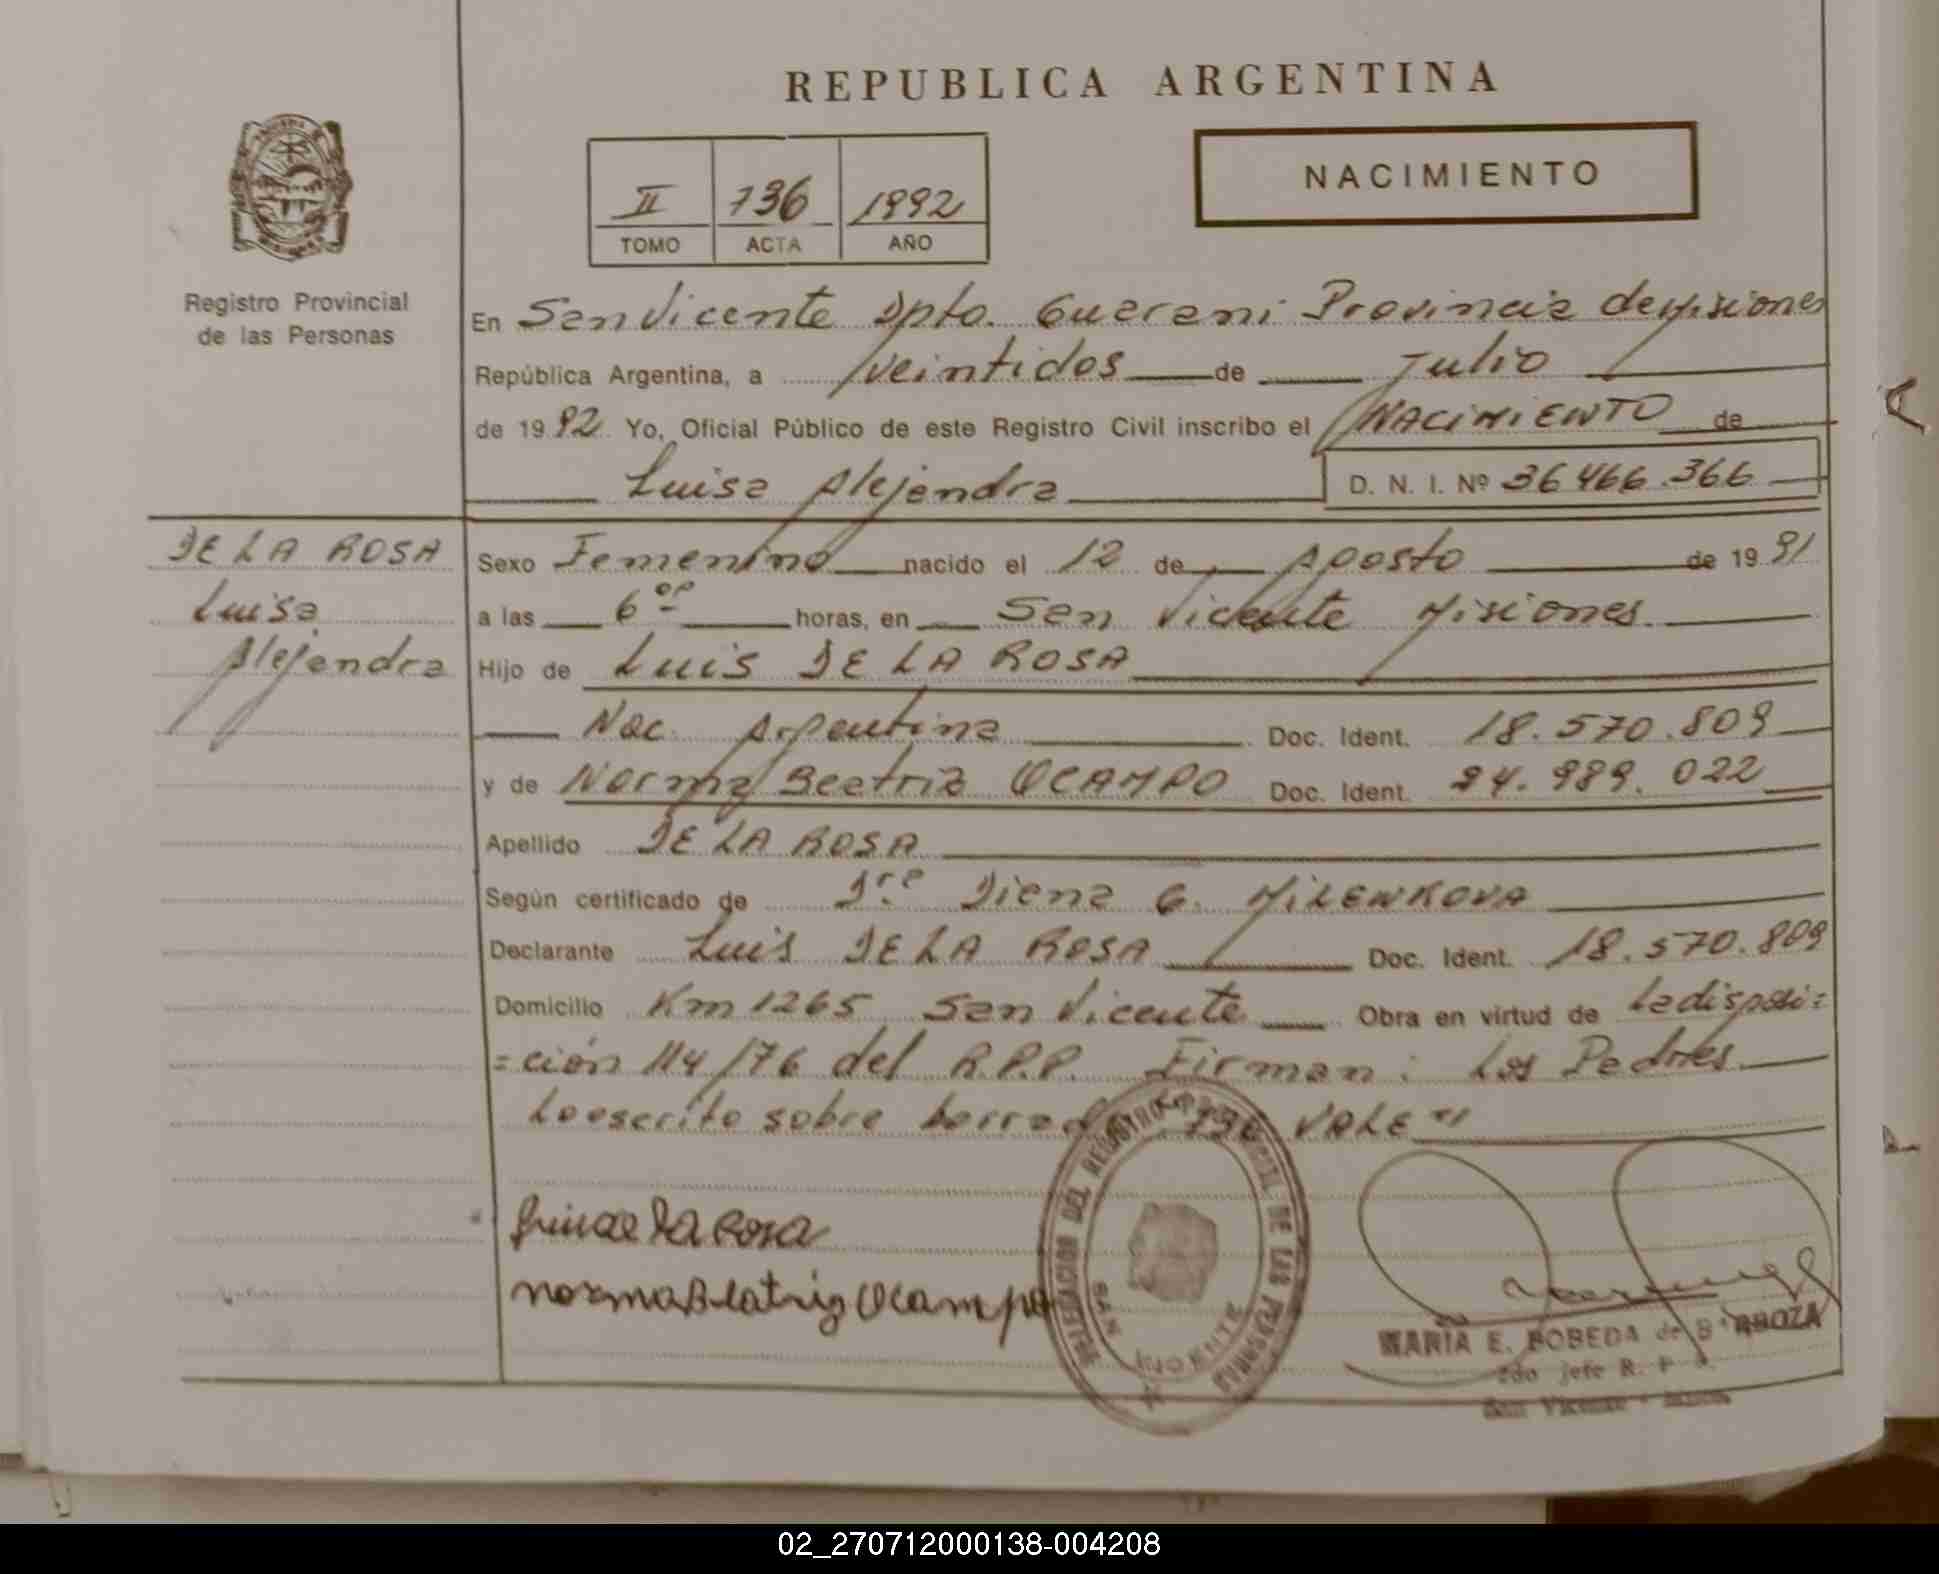 REPUBLICA ARGENTINA
NACIMIENTO
II 736 1992
TOMO ACTA AÑO
Registro Provincial
de las Personas
En San Vicente Dpto. Guarani Provincia de Misiones
República Argentina, a veintidos de Julio
de 1992 Yo, Oficial Público de este Registro Civil inscribo el NACIMIENTO de
Luisa Alejandra D. N. I. Nº 36 466.366
DE LA ROSA
Luisa
Alejandra
Sexo Femenino nacido el 12 de Agosto de 1991
a las 6 horas, en San Vicente Misiones.
Hijo de Luis DE LA ROSA
Nac. Argentina Doc. Ident. 18.570.809
y de Norma Beatriz OCAMPO Doc. Ident. 24.989.022
Apellido DE LA ROSA
Según certificado de Dra Diana G. MILENKOVA
Declarante Luis DE LA ROSA Doc. Ident. 18.570.809
Domicilio Km 1265 San Vicente Obra en virtud de La disposi=
=ción 114/76 del R.P.P. Firman: Los Padres
Lo escrito sobre 736 VALE"
Luis de la Rosa
Norma Beatriz Ocampo
DELEGACION DEL REGISTRO PROVINCIAL DE LAS PERSONAS
SAN VICENTE
MARIA E. BOBEDA de BARBOZA
2do Jefe R. P.
San Vicente - Mnes
02_270712000138-004208